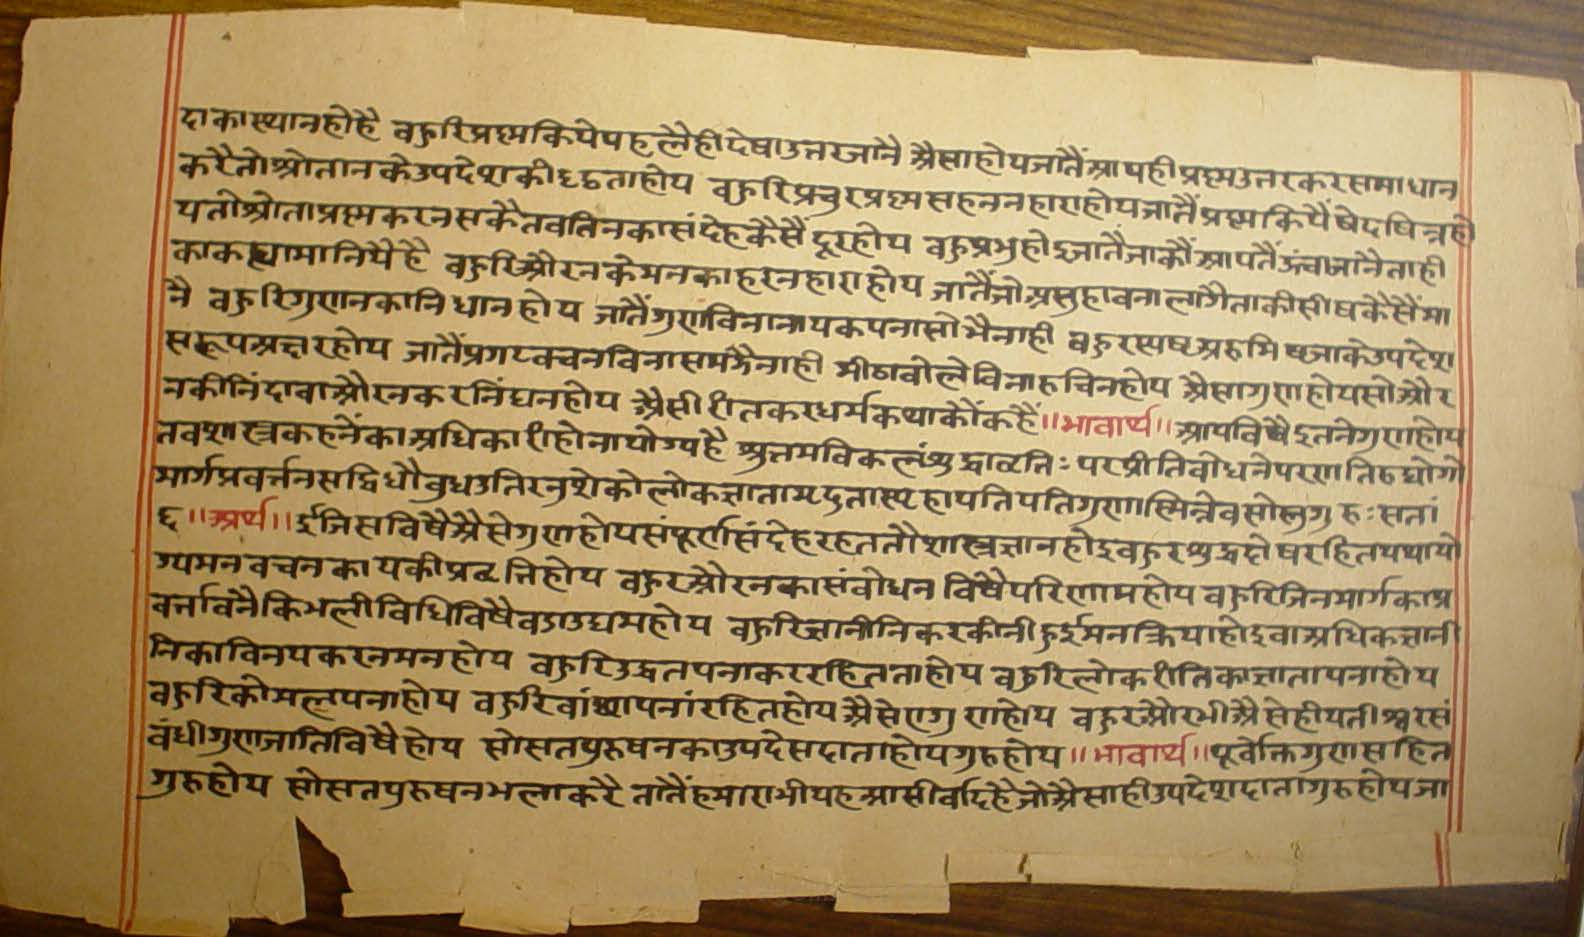 दाकास्थानहोहै वहुरिप्रश्नकियेपहलैहीदेषाउत्तरजानै अैसाहोयजातैंआपहीप्रश्नउत्तरकरसमाधान
करैतोश्रोतानकेउपदेशकीदृढताहोय वहुरिप्रचुरप्रश्नसहननहाराहोयजातैंप्रश्नकियैंषेदषिन्नहो
यतोश्रोताप्रश्नकरनसकैतवतिनकासंदेहकैसैंदूरहोय वहुप्रभुहोइजातैजाकौंआपतैंऊंचाजानैताही
काकह्यामानियैहै वहुरिऔरनकेमनकाहरनहाराहोय जातैंजोअसुहावनालागैताकीसीषकैसैंमा
नै वहुरिगुणनकानिधानहोय जातैंगुणविनानायकपनासोभैनाही वहुरस्पष्टअरुमिष्टजाकेउपदेश
सरूपअक्षरहोय जातैंप्रगटवचनविनासमझैनाही मीठावोलेविनारुचिनहोय अैसागुणहोयसोऔर
नकीनिंदावाऔरनकरनिंद्यनहोय अैसीरीतकरधर्मकथाकौंकहैं॥भावार्थ॥आपविषैइतनेगुणहोय
तवशास्त्रकहनेंकाअधिकारीहोनायोग्यहै श्रुतमविकलंशुद्धावृतिः परप्रीतिवोधनेपरणतिरुद्योगो
मार्गप्रवर्त्तनसद्विधौवुधउतिरनुशेकोलोकज्ञातामृदुतास्पृहापतिपतिगुणास्मिन्नेवसोस्तुगुरुःसतां
६॥अर्थ॥ईजिसविषैअैसेगुणहोयसंपूर्णसंदेहरहततौशास्त्रज्ञानहोइवहुरशुद्धदोषरहितयथायो
ग्यमनवचनकायकीप्रवृत्तिहोय वहुरऔरनकासंवोधन विषैपरिणामहोय वहुरिजिनमार्गकाप्र
वर्त्तावनैकिभलीविधिविषैवडाउद्यमहोय वहुरिज्ञानीनिकरकीनीहुईमनक्रियाहोइवाअधिकज्ञानी
निकाविनयकरनमनहोय वहुरिउद्धतपनाकररहितताहोय वहुरिलोकरीतिकाज्ञातापनाहोय
वहुरिकोमलपनाहोय वहुरिवांछापनांरहितहोयअैसेएगुणहोय वहुरऔरभीअैसेहीयतीश्वरसं
वंधीगुणजातिविषैहोय सोसतपुरुषनकाउपदेसदाताहोयगुरुहोय॥भावार्थ॥पूर्वोक्तिगुणसहित
गुरुहोय सोसतपुरुषनभलाकरै तातैंहमाराभीयहआसीर्वादहैजोअैसाहीउपदेशदातागुरुहोयजा